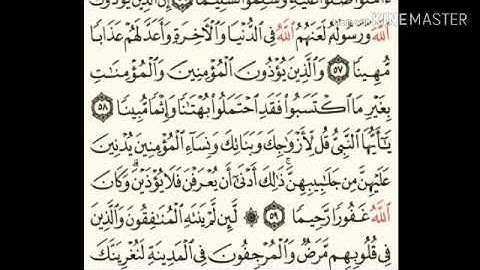 ءامنوا صلوا عليه وسلموا تسليما ٥٦ إن الذين يؤذون
KINEMASTER
ٱللَّهَ وَرَسُولَهُۥ لَعَنَهُمُ ٱللَّهُ فِى ٱلدُّنْيَا وَٱلْـَٔاخِرَةِ وَأَعَدَّ لَهُمْ عَذَابًا
مُّهِينًا ٥٧ وَٱلَّذِينَ يُؤْذُونَ ٱلْمُؤْمِنِينَ وَٱلْمُؤْمِنَـٰتِ
بِغَيْرِ مَا ٱكْتَسَبُوا۟ فَقَدِ ٱحْتَمَلُوا۟ بُهْتَـٰنًا وَإِثْمًا مُّبِينًا ٥٨
يَـٰٓأَيُّهَا ٱلنَّبِىُّ قُل لِّأَزْوَٰجِكَ وَبَنَاتِكَ وَنِسَآءِ ٱلْمُؤْمِنِينَ يُدْنِينَ
عَلَيْهِنَّ مِن جَلَـٰبِيبِهِنَّ ۚ ذَٰلِكَ أَدْنَىٰٓ أَن يُعْرَفْنَ فَلَا يُؤْذَيْنَ ۗ وَكَانَ
ٱللَّهُ غَفُورًا رَّحِيمًا ٥٩ ۞ لَّئِن لَّمْ يَنتَهِ ٱلْمُنَـٰفِقُونَ وَٱلَّذِينَ
فِى قُلُوبِهِم مَّرَضٌ وَٱلْمُرْجِفُونَ فِى ٱلْمَدِينَةِ لَنُغْرِيَنَّكَ